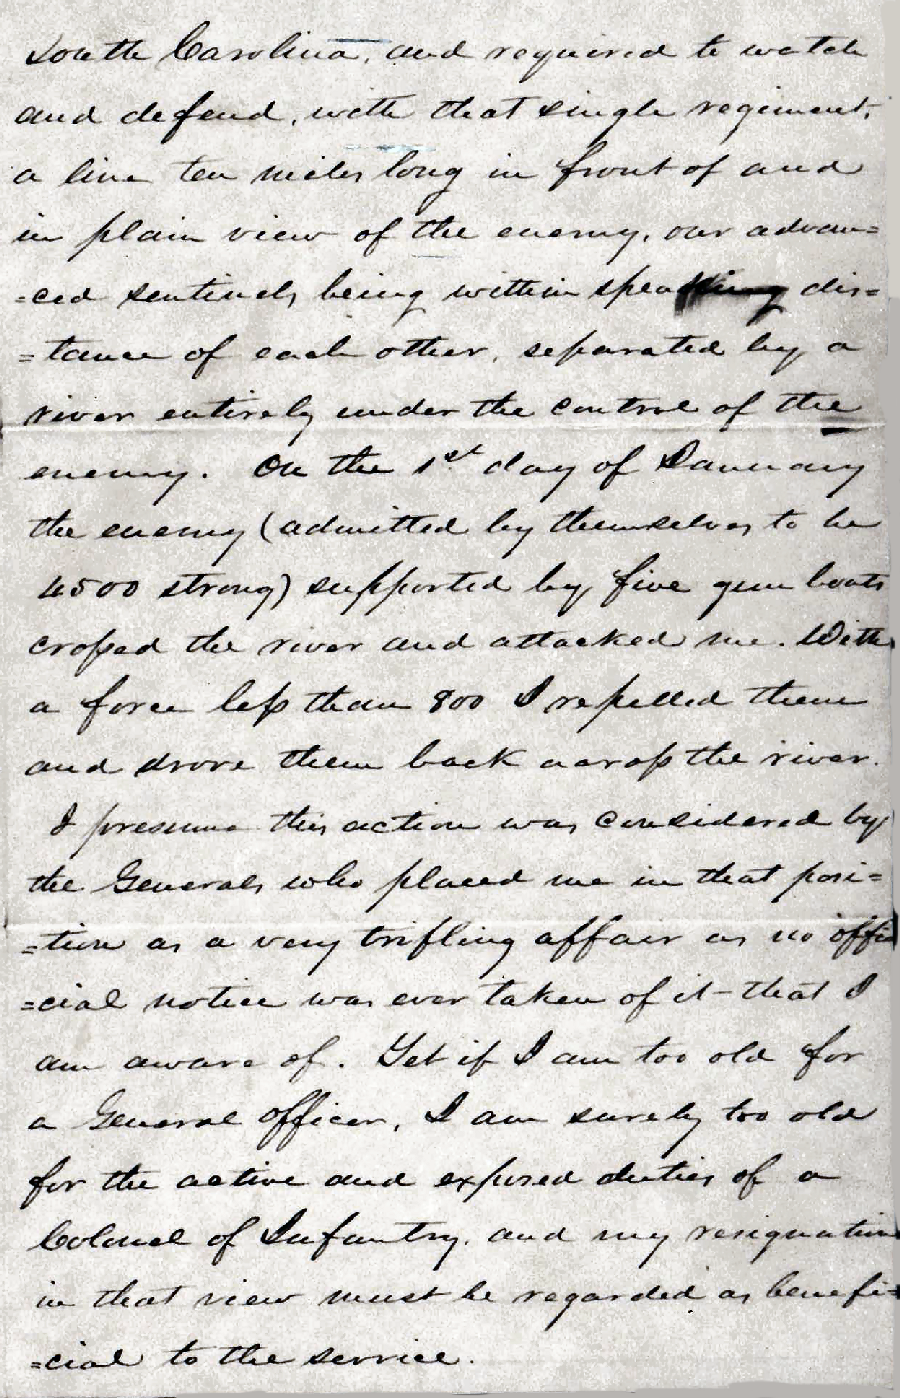 South Carolina, and required to watch
and defend, with that single regiment,
a line ten miles long in front of and
in plain view of the enemy, our advan=
=ced sentinels being within speaking dis=
=tance of each other, separated by a
river entirely under the control of the
enemy. On the 1st day of January
the enemy (admitted by themselves to be
4500 strong) supported by five gun boats
crossed the river and attacked me. With
a force less than 800 I repelled them
and drove them back across the river.
I presume this action was considered by
the Generals who placed me in that posi=
=tion as a very trifling affair as no offi
=cial notice was ever taken of it - that I
am aware of. Yet if I am too old for
a General officer, I am surely too old
for the active and exposed duties of a
Colonel of Infantry, and my resignation
in that view must be regarded as benefi=
=cial to the service.